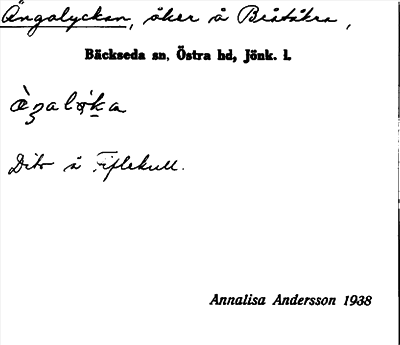 Ängalyckan, åker å Blåtåkra,
Bäckseda sn, Östra hd, Jönk. l.
Dito å Fiflekull.
Annalisa Andersson 1938